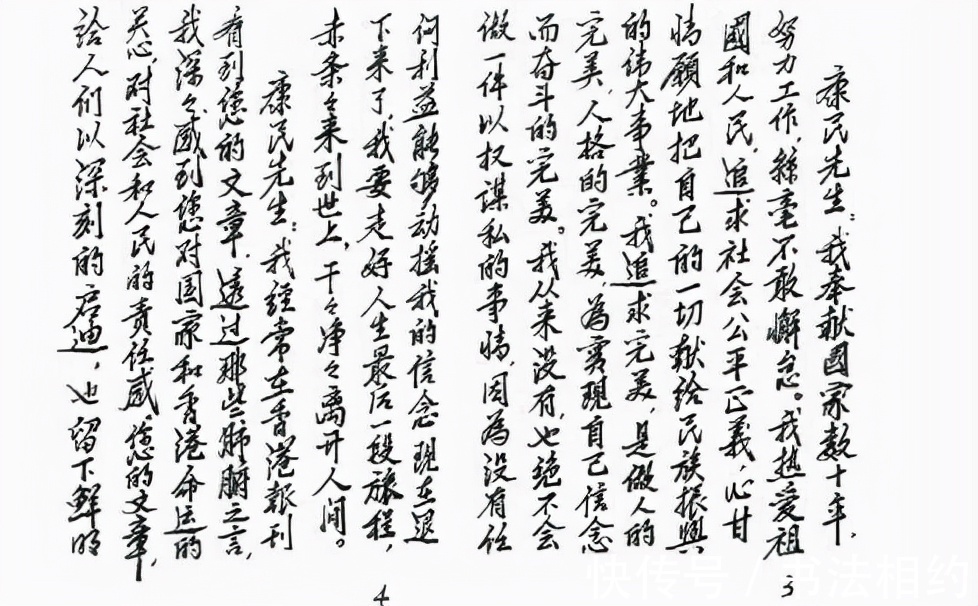 康民先生：我奉献國家数十年，
努力工作，絲毫不敢懈怠。我热爱祖
國和人民，追求社会公平正義，心甘
情願地把自己的一切献给民族振興
的伟大事業。我追求完美，是做人的
完美，人格的完美，為实現自己信念
而奋斗的完美。我从来没有，也绝不会
做一件以权謀私的事情，因為没有任
3
何利益能够动摇我的信念。現在退
下来了，我要走好人生最后一段旅程，
赤条々来到世上，干々净々离开人间。
康民先生：我經常在香港報刊
看到您的文章，透过那些肺腑之言，
我深々感到您对国家和香港命运的
关心，对社会和人民的责任感。您的文章，
給人们以深刻的启迪，也留下鮮明
4
快传号 / 书法相约